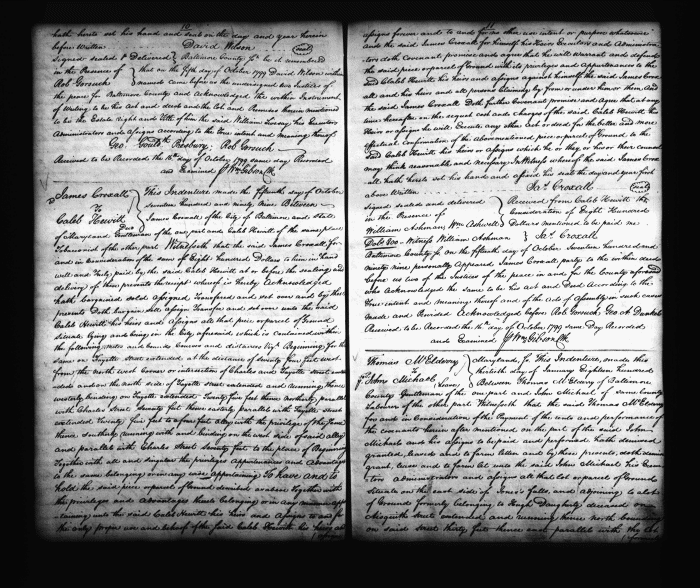 hath hereto set his hand and seal on the day and year herein
before Written David Wilson
Signed sealed & Delivered Baltimore County Sc. be it remembered
in the Presence of that on the fifth day of October 1799 David Wilson within
Rob Gorsuch came before us the undersigned two Justices of
the peace for Baltimore County and Acknowledged the within Instrument
of Writing to be his Act and deed and the lot and Premises therein mentioned
to be the Estate right and title of him the said William his Executors
Administrators and Assigns according to the true intent and meaning thereof
Geo. Presbury Rob Gorsuch
Received to be Recorded the 16th day of October 1799 same day Recorded
and Examined Wm Gibson Clk
James Croxall This Indenture made the fifteenth day of October
to seventeen hundred and ninety Nine Between
Caleb Hewitt James Croxall of the City of Baltimore and State
of Maryland of the one part and Caleb Hewitt of the same place
of the other part Witnesseth that the said James Croxall for
and in Consideration of the sum of Eight Hundred Dollars to him in hand
well and truly paid by the said Caleb Hewitt at or before the sealing and
delivery of these presents the receipt whereof is hereby Acknowledged
hath bargained sold Assigned Transfered and set over and by these
presents Doth bargain sell Assign Transfer and set over unto the said
Caleb Hewitt his heirs and Assigns all that piece or parcel of Ground
situate lying and being in the City aforesaid which is contained within
the following metes and bounds Courses and distances Vizt Beginning for the
same on Fayette Street extended at the distance of seventy five feet west
from the north west Corner or intersection of Charles and Fayette street
and on the north side of Fayette street extended and running thence
westerly binding on Fayette extended Twenty five feet thence northerly parallel
with Charles street seventy feet thence easterly parallel with Fayette street
extended Twenty five feet to a four feet alley with the privilege of the same
thence southerly running with and binding on the west side of said alley
and parallel with Charles street seventy feet to the place of Beginning
Together with all and singular the privileges Appurtenances and Advantages
to the same belonging or in any wise Appertaining To have and to
hold the said piece or parcel of Ground demised or above Together with
the privileges and Advantages thereto belonging or in any manner
unto the said Caleb Hewitt his heirs and Assigns to and for
the only proper use and behoof of the said Caleb Hewitt his heirs and
Assigns forever and to and for no other use intent or purpose whatsoever
and the said James Croxall for himself his Heirs Executors and Administrators
doth Covenant promise and agree that he will Warrant and defend
the said piece or parcel of Ground with its privileges and Appurtenances to the
said Caleb Hewitt his heirs and Assigns against himself the said James Croxall
and his heirs and all persons Claiming by from or under him or them And
the said James Croxall Doth further Covenant promise and Agree that at any
time hereafter on the request cost and charges of the said Caleb Hewitt his
Heirs or Assigns he will Execute any other Act or deed for the better and more
effectual confirmation of the abovementioned piece or parcel of Ground to the
said Caleb Hewitt his heirs or Assigns which he or they or his or their counsel
may think reasonable and necessary In Witness whereof the said James Croxall
hath hereto set his hand and affixed his seal the day and year first
above Written Jas. Croxall
Signed sealed and delivered Received from Caleb Hewitt the
in the Presence of Consideration of Eight Hundred
William Ashman, Wm Ashwell Dollars mentioned to be paid me
Witness William Ashman Jas. Croxall
Baltimore County Sc. on the fifteenth day of October Seventeen hundred and
ninety nine personally Appeared James Croxall party to the within deed
before us two of the Justices of the peace in and for the County aforesaid
who Acknowledged the same to be his act and Deed According to the
True intent and Meaning thereof and of the Acts of Assembly in such cases
Made and Provided Acknowledged before Rob Gorsuch Geo. A. Dunkel
Received to be Recorded the 16th day of October 1799 Same Day Recorded
and Examined Wm Gibson Clk
Thomas McElderry Maryland, Sc. This Indenture, made this
to thirtieth day of January Eighteen Hundred
John Michael Lease Between Thomas McElderry of Baltimore
County Gentleman of the one part and John Michael of same County
Labourer of the other part Witnesseth that the said Thomas McElderry
for and in Consideration of the Payment of the rents and performance of
the Covenants herein after mentioned on the part of the said John
Michael and his Assigns to be paid and performed hath demised
granted, leased and to farm letten and by these presents, doth demise
grant, lease and to farm let unto the said John Michael his Executors
administrators and assigns all that lot or parcel of Ground
Situate on the east side of Jones's Falls and adjoining to a lot
of Ground formerly belonging to Hugh Daugherty deceased on
Aisquith street extended and running thence north bounding
on said street thirty feet thence east parallel with